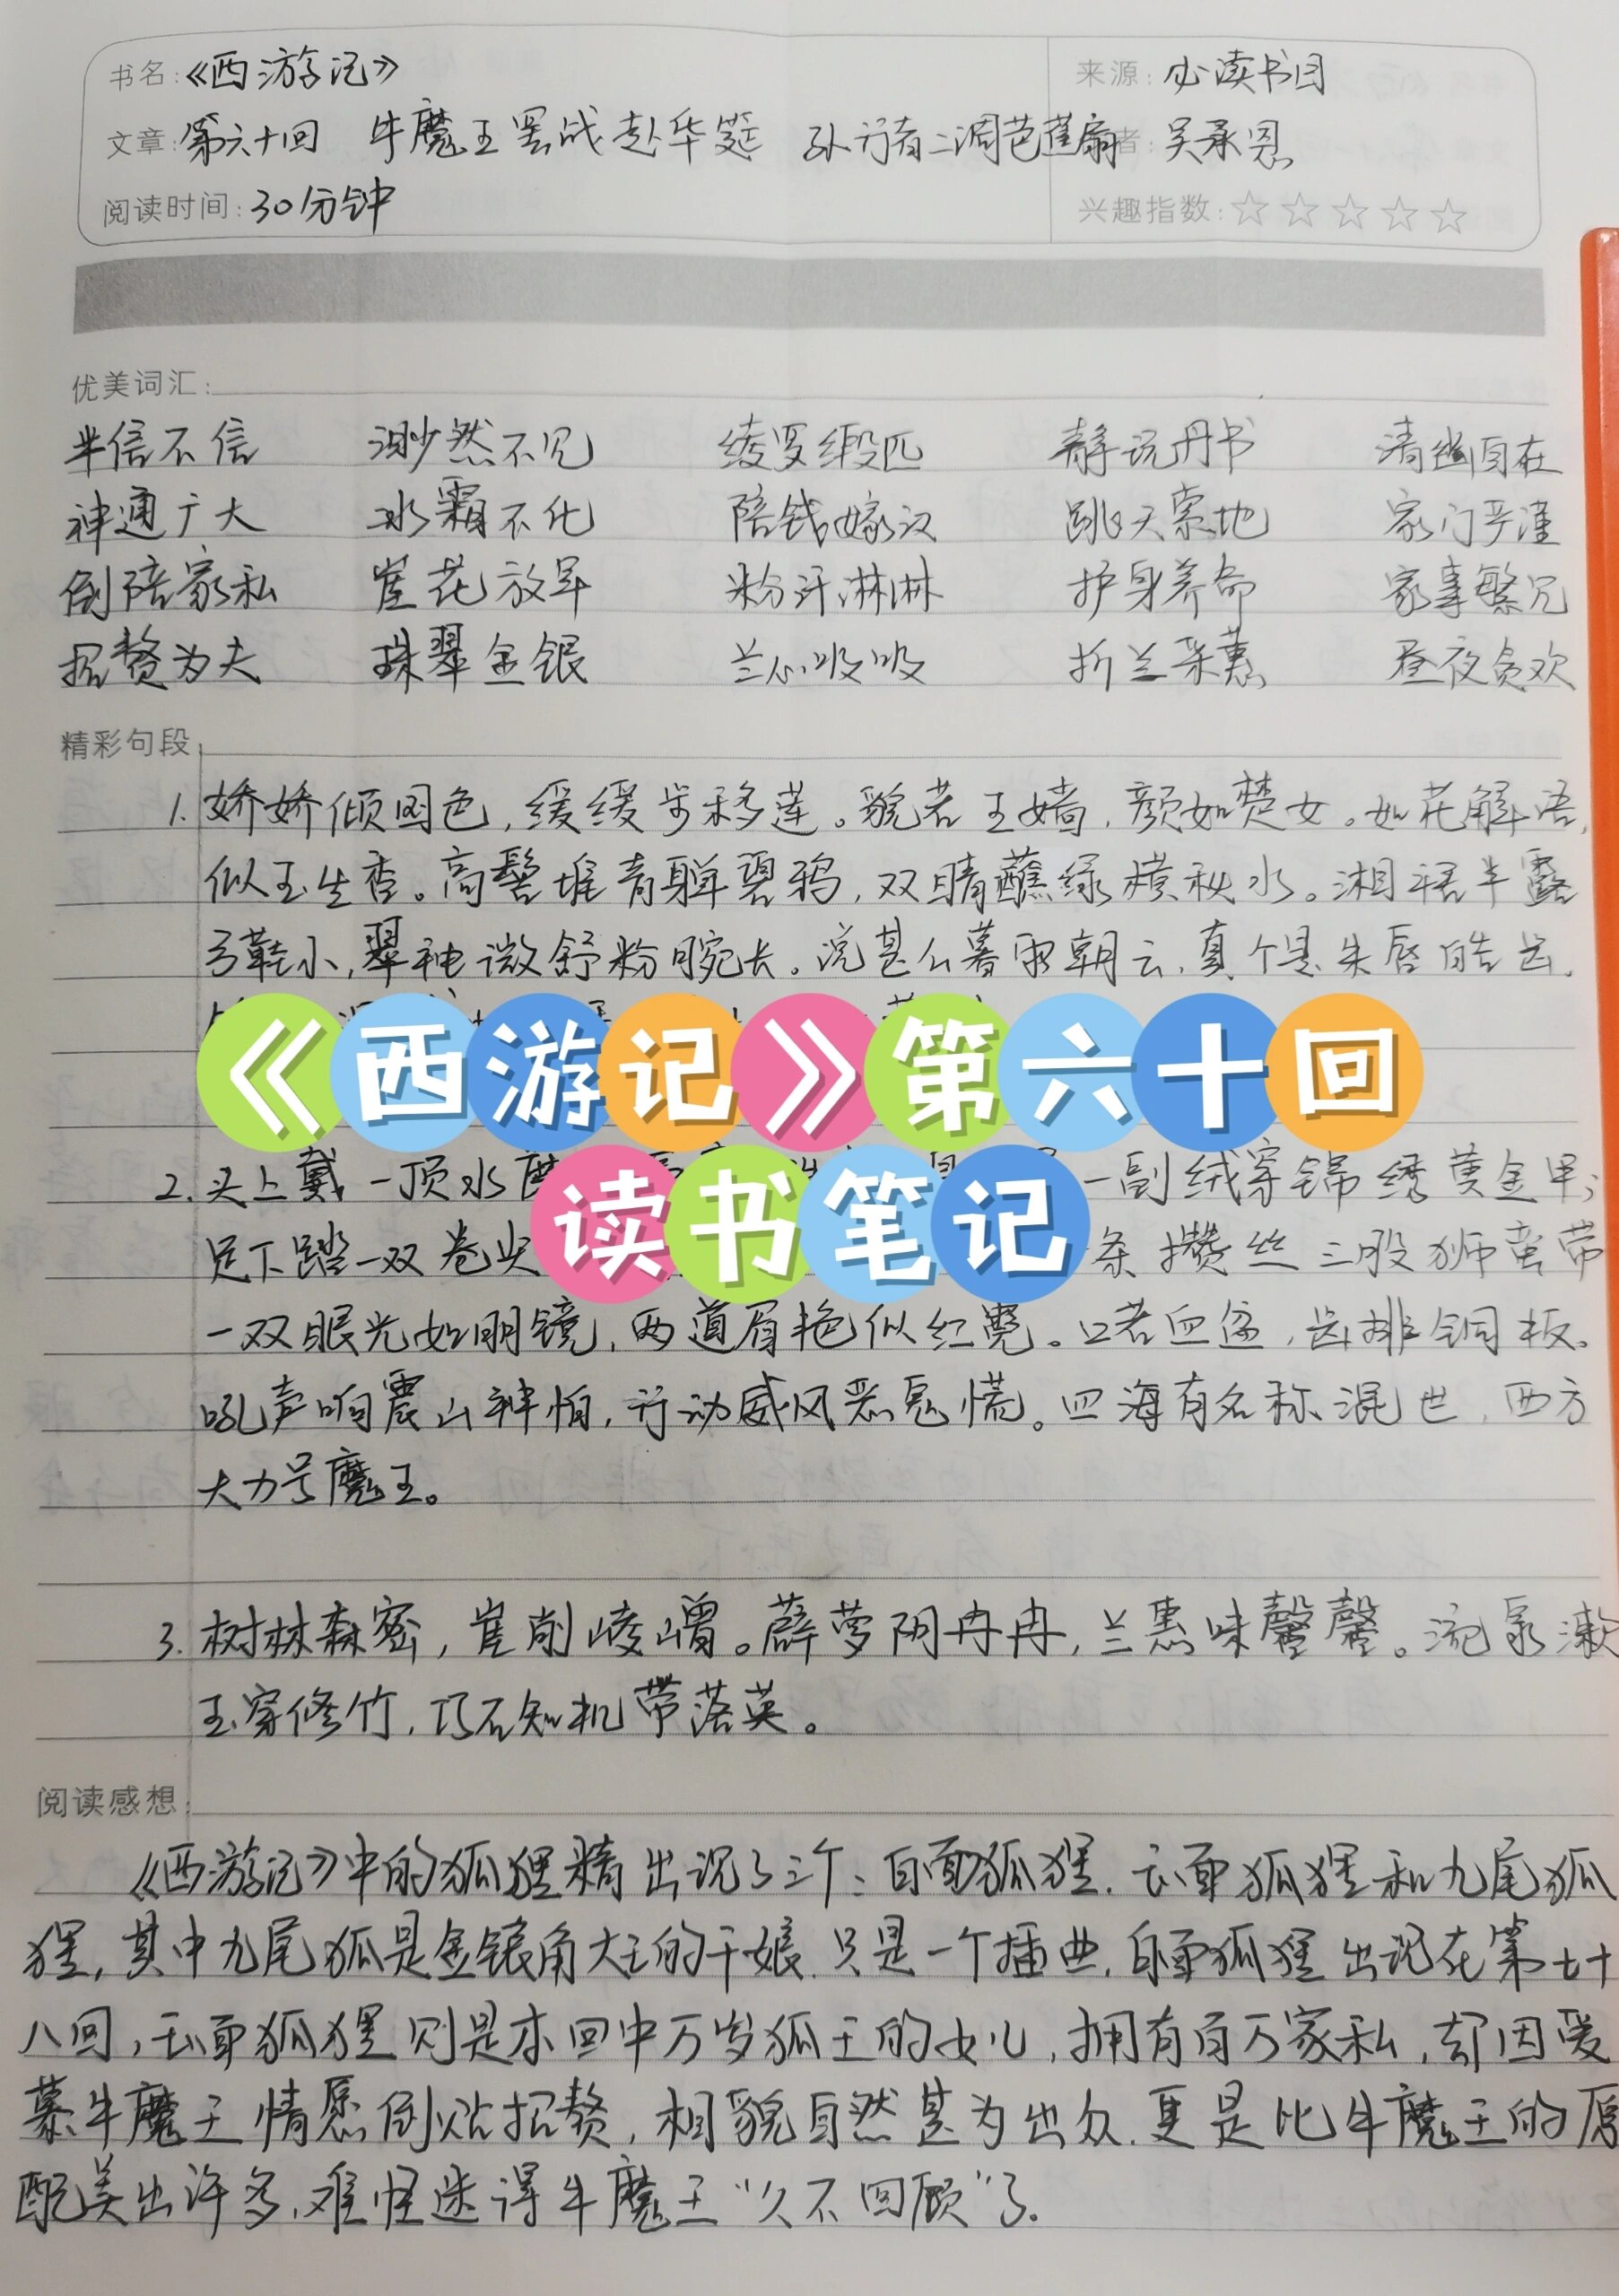 书名:《西游记》
来源:必读书目
文章:第六十回 牛魔王罢战赴华筵 孙行者二调芭蕉扇
者:吴承恩
阅读时间:30分钟
兴趣指数:☆☆☆☆☆
优美词汇:
半信不信 渺然不见 绫罗缎匹 静玩丹书 清幽自在
神通广大 水霜不化 陪钱嫁汉 跳天索地 家门严谨
倒陪家私 崖花放早 粉汗淋淋 护身养命 家事繁冗
招赘为夫 珠翠金银 兰心吸吸 折兰采蕙 昼夜贪欢
精彩句段:
1. 娇娇倾国色,缓缓步移莲。貌若王嫱,颜如楚女。如花解语,
似玉生香。高髻堆青軃碧鸦,双睛蘸绿横秋水。湘裙半露
弓鞋小,翠袖微舒粉腕长。说甚么暮雨朝云,真个是朱唇皓齿。
《西游记》第六十回
读书笔记
2. 头上戴一顶水磨 一副绒穿锦绣黄金甲;
足下踏一双卷尖 条攒丝三股狮蛮带
一双眼光如明镜,两道眉艳似红霓。口若血盆,齿排铜板。
吼声响震山神怕,行动威风恶鬼慌。四海有名称混世,西方
大力号魔王。
3. 树林森密,崖削崚嶒。薜萝阴冉冉,兰蕙味馨馨。流泉漱
玉穿修竹,巧石知机带落英。
阅读感想:
《西游记》中的狐狸精出现了三个:白面狐狸、玉面狐狸和九尾狐
狸,其中九尾狐是金银角大王的干娘,只是一个插曲,白面狐狸出现在第七十
八回,玉面狐狸则是本回中万岁狐王的女儿,拥有百万家私,却因爱
慕牛魔王情愿倒贴招赘,相貌自然甚为出众,更是比牛魔王的原
配美出许多,难怪迷得牛魔王“久不回顾”了。